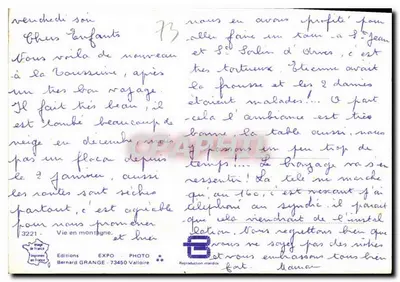 vendredi soir
Chers Enfants
73
Nous voila de nouveau
à la Toussuire, après
un très bon voyage.
Il fait très beau, il
est tombé beaucoup de
neige en decembre mais
pas un flocon depuis
le 2 Janvier, aussi
les routes sont sèches
partout, c'est agréable
pour nous promener
et hier
nous en avons profité pour
aller faire un tour à St Jean
et St Sorlin d'Arves, c'est
très tortueux. Etienne avait
la frousse et les 2 dames
étaient malades!.. A part
cela l'ambiance est très
bonne la table aussi, nous
y passons un peu trop de
temps!... Le bronzage va s'en
ressentir! La télé ne marche
qu'au 160, c'est vexant j'ai
téléphoné au syndic il parait
que cela viendrait de l'instal
lation. Nous regrettons bien que
vous ne soyez pas des nôtres
et vous embrassons tous bien
fort. Maman
3221. Vie en montagne.
Editions EXPO PHOTO
Bernard GRANGE - 73450 Valloire
Reproduction interdite